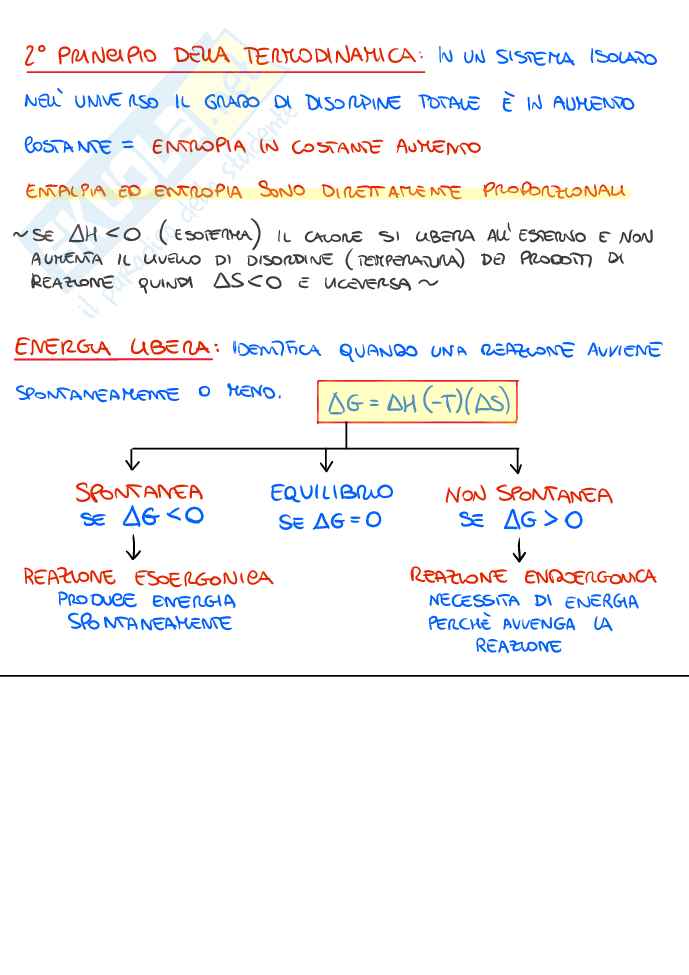 2° PRINCIPIO DELLA TERMODINAMICA: IN UN SISTEMA ISOLATO
NELL'UNIVERSO IL GRADO DI DISORDINE TOTALE È IN AUMENTO
COSTANTE = ENTROPIA IN COSTANTE AUMENTO
ENTALPIA ED ENTROPIA SONO DIRETTAMENTE PROPORZIONALI
~ SE ΔH < 0 (ESOTERMA) IL CALORE SI LIBERA ALL'ESTERNO E NON
AUMENTA IL LIVELLO DI DISORDINE (TEMPERATURA) DEI PRODOTTI DI
REAZIONE QUINDI ΔS < 0 E VICEVERSA ~
ENERGIA LIBERA: IDENTIFICA QUANDO UNA REAZIONE AVVIENE
SPONTANEAMENTE O MENO.
ΔG = ΔH (-T)(ΔS)
SPONTANEA
SE ΔG < 0
EQUILIBRIO
SE ΔG = 0
NON SPONTANEA
SE ΔG > 0
REAZIONE ESOERGONICA
PRODUCE ENERGIA
SPONTANEAMENTE
REAZIONE ENDOERGONICA
NECESSITA DI ENERGIA
PERCHÈ AVVENGA LA
REAZIONE
SKUOLA.net
il paradiso dello studente